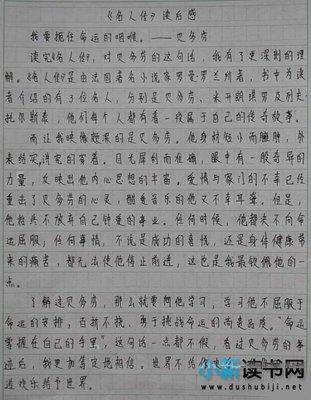 《名人传》读后感
我要扼住命运的咽喉。——贝多芬
读完《名人传》，对贝多芬的这句话，我有了更深刻的理
解。《名人传》是由法国著名小说家罗曼·罗兰所著，书中为读
者介绍的有3位名人，分别是贝多芬、米开朗琪罗及列夫·
托尔斯泰，他们每个人都有着一段属于自己的传奇故事。
而让我映像颇深的是贝多芬。他身材短小而臃肿，外
表结实，
的容着。目光犀利而准确，眼中有一股奇异的
力量，反映出他内心思想的丰富。爱情与家门的不幸已经
重击了贝多芬的心灵，酷爱音乐的他又不幸耳聋。但是，
他始终不放弃自己钟爱的事业。任何时候，他都未向命
运屈服，任何事情，不说是成功的喜悦，还是身体健康带
来的痛苦，都无法使他停止前进，这也是我最钦佩他的一
点。
了解过贝多芬，那么就要向他学习，学习他不屈服于
命运的安排，百折不挠、勇于挑战命运的高贵品质。“命运
掌握在自己的手里”，这句话一点都不假，看过贝多芬的事
迹后，我更加坚定地相信。世界不给他
造欢乐给予世界。
小新读书网
www.dushubiji.net